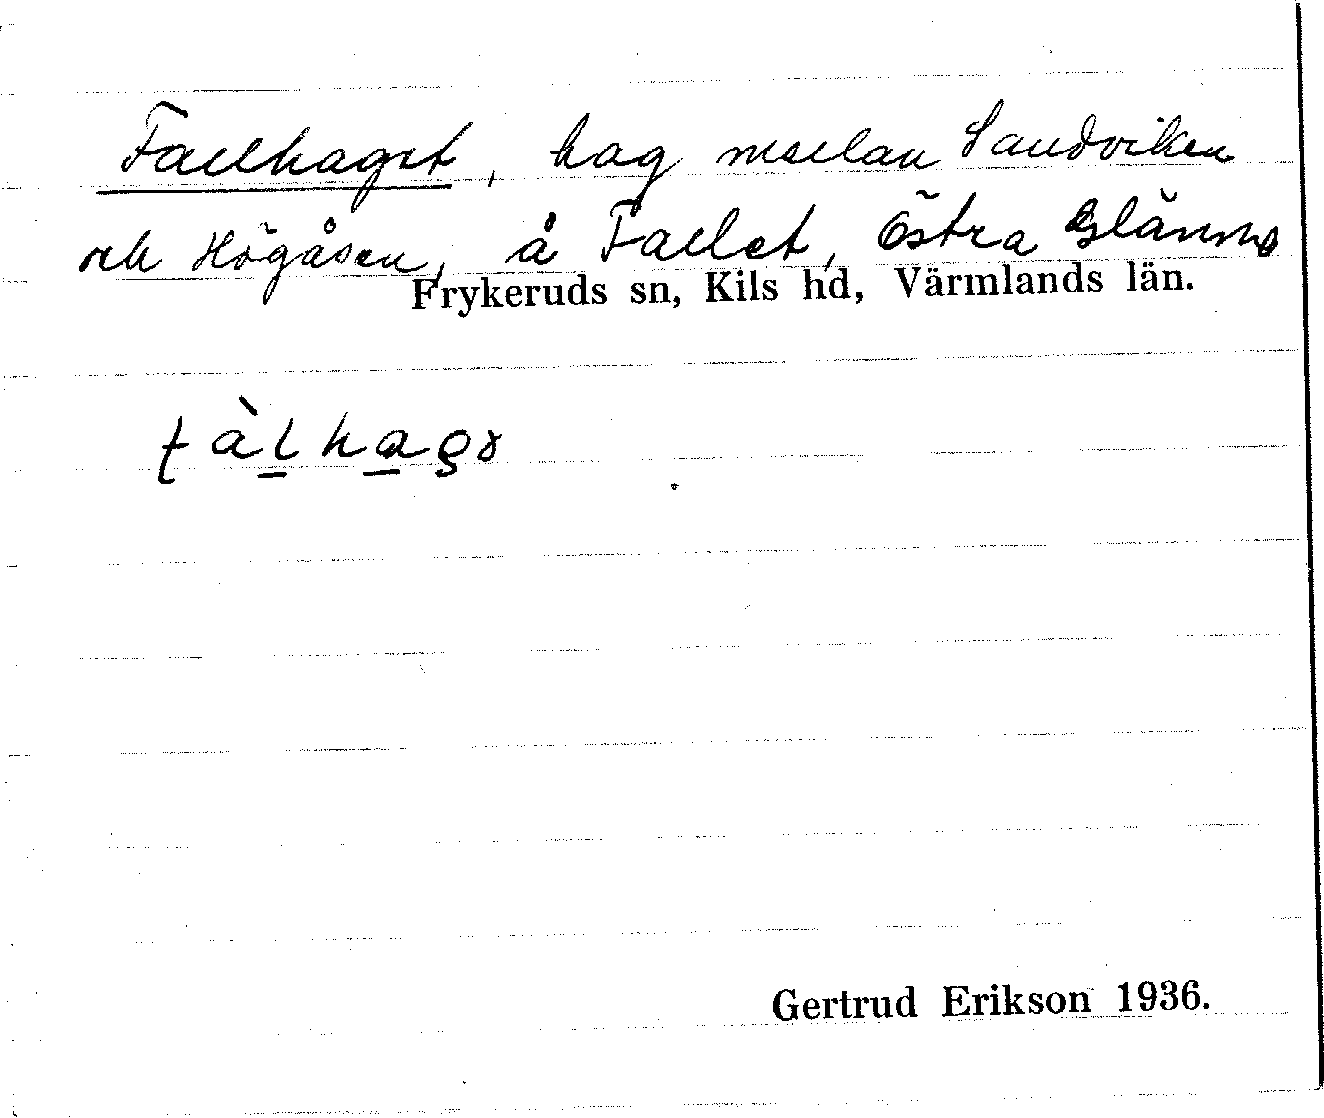 Fallhaget, hag mellan Sandviken
och Högåsen, å Fallet, Östra Glänne
Frykeruds sn, Kils hd, Värmlands län.
fàlhagə
Gertrud Erikson 1936.